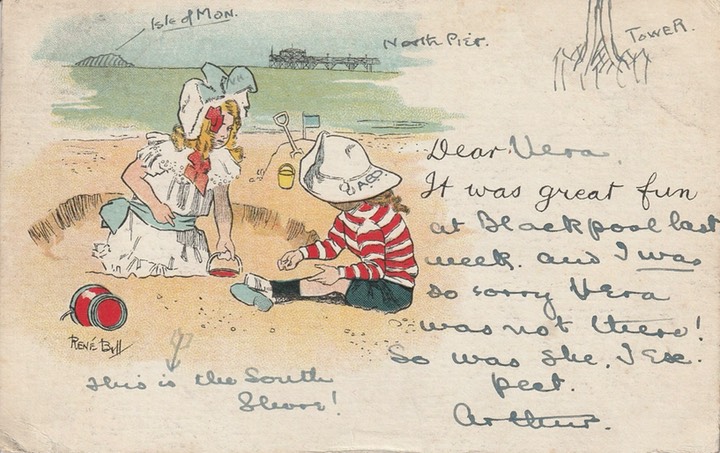 Isle of MON.
NORTH PIER.
TOWER.
VK
A.E.D.
Dear Vera,
It was great fun
at Blackpool last
week. and I was
so sorry Vera
was not there!
So was she, I Ex-
pect.
Arthur.
RENÉ Bull
This is the South
Shore!